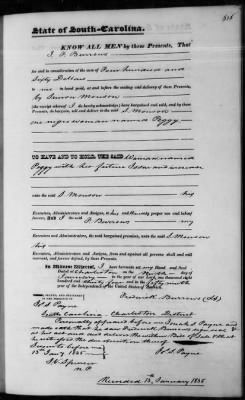 State of South-Carolina.
KNOW ALL MEN by these Presents, That
I F Burrows
for and in consideration of the sum of Four hundred and
Sixty Dollars
to me in hand paid, at and before the sealing and delivery of these Presents,
by Simon Monson
(the receipt whereof I do hereby acknowledge) have bargained and sold, and by these
Presents, do bargain, sell and deliver to the said S Monson
one negro woman named Peggy
TO HAVE AND TO HOLD, THE SAID Woman named
Peggy with her future Issue and increase
unto the said S Monson his
Executors, Administrators and Assigns, to his and their only proper use and behoof,
forever. And I the said F Burrows my
Executors and Administrators, the said bargained premises, unto the said S Monson
his
Executors, Administrators and Assigns, from and against all persons shall and will
warrant, and forever defend, by these Presents.
In Witness Whereof, I have hereunto set my Hand and Seal
Dated at Charleston on the Ninth day of
January in the year of our Lord, one thousand
eight hundred and thirty four and in the fifty ninth
year of the Independence of the United States of America.
SEALED, AND DELIVERED
IN THE PRESENCE OF
Frederick Burrows
Js S. Payne
South Carolina Charleston District
Personally appeared before me Josiah S Payne and
made oath that he saw Frederick Burrows sign seal
as his act and deed deliver the within Bill of Sale & that
he witnessed the due execution thereof
Sworn to before me
15 Jany 1835
Js S. Payne
Recorded 15th January 1835